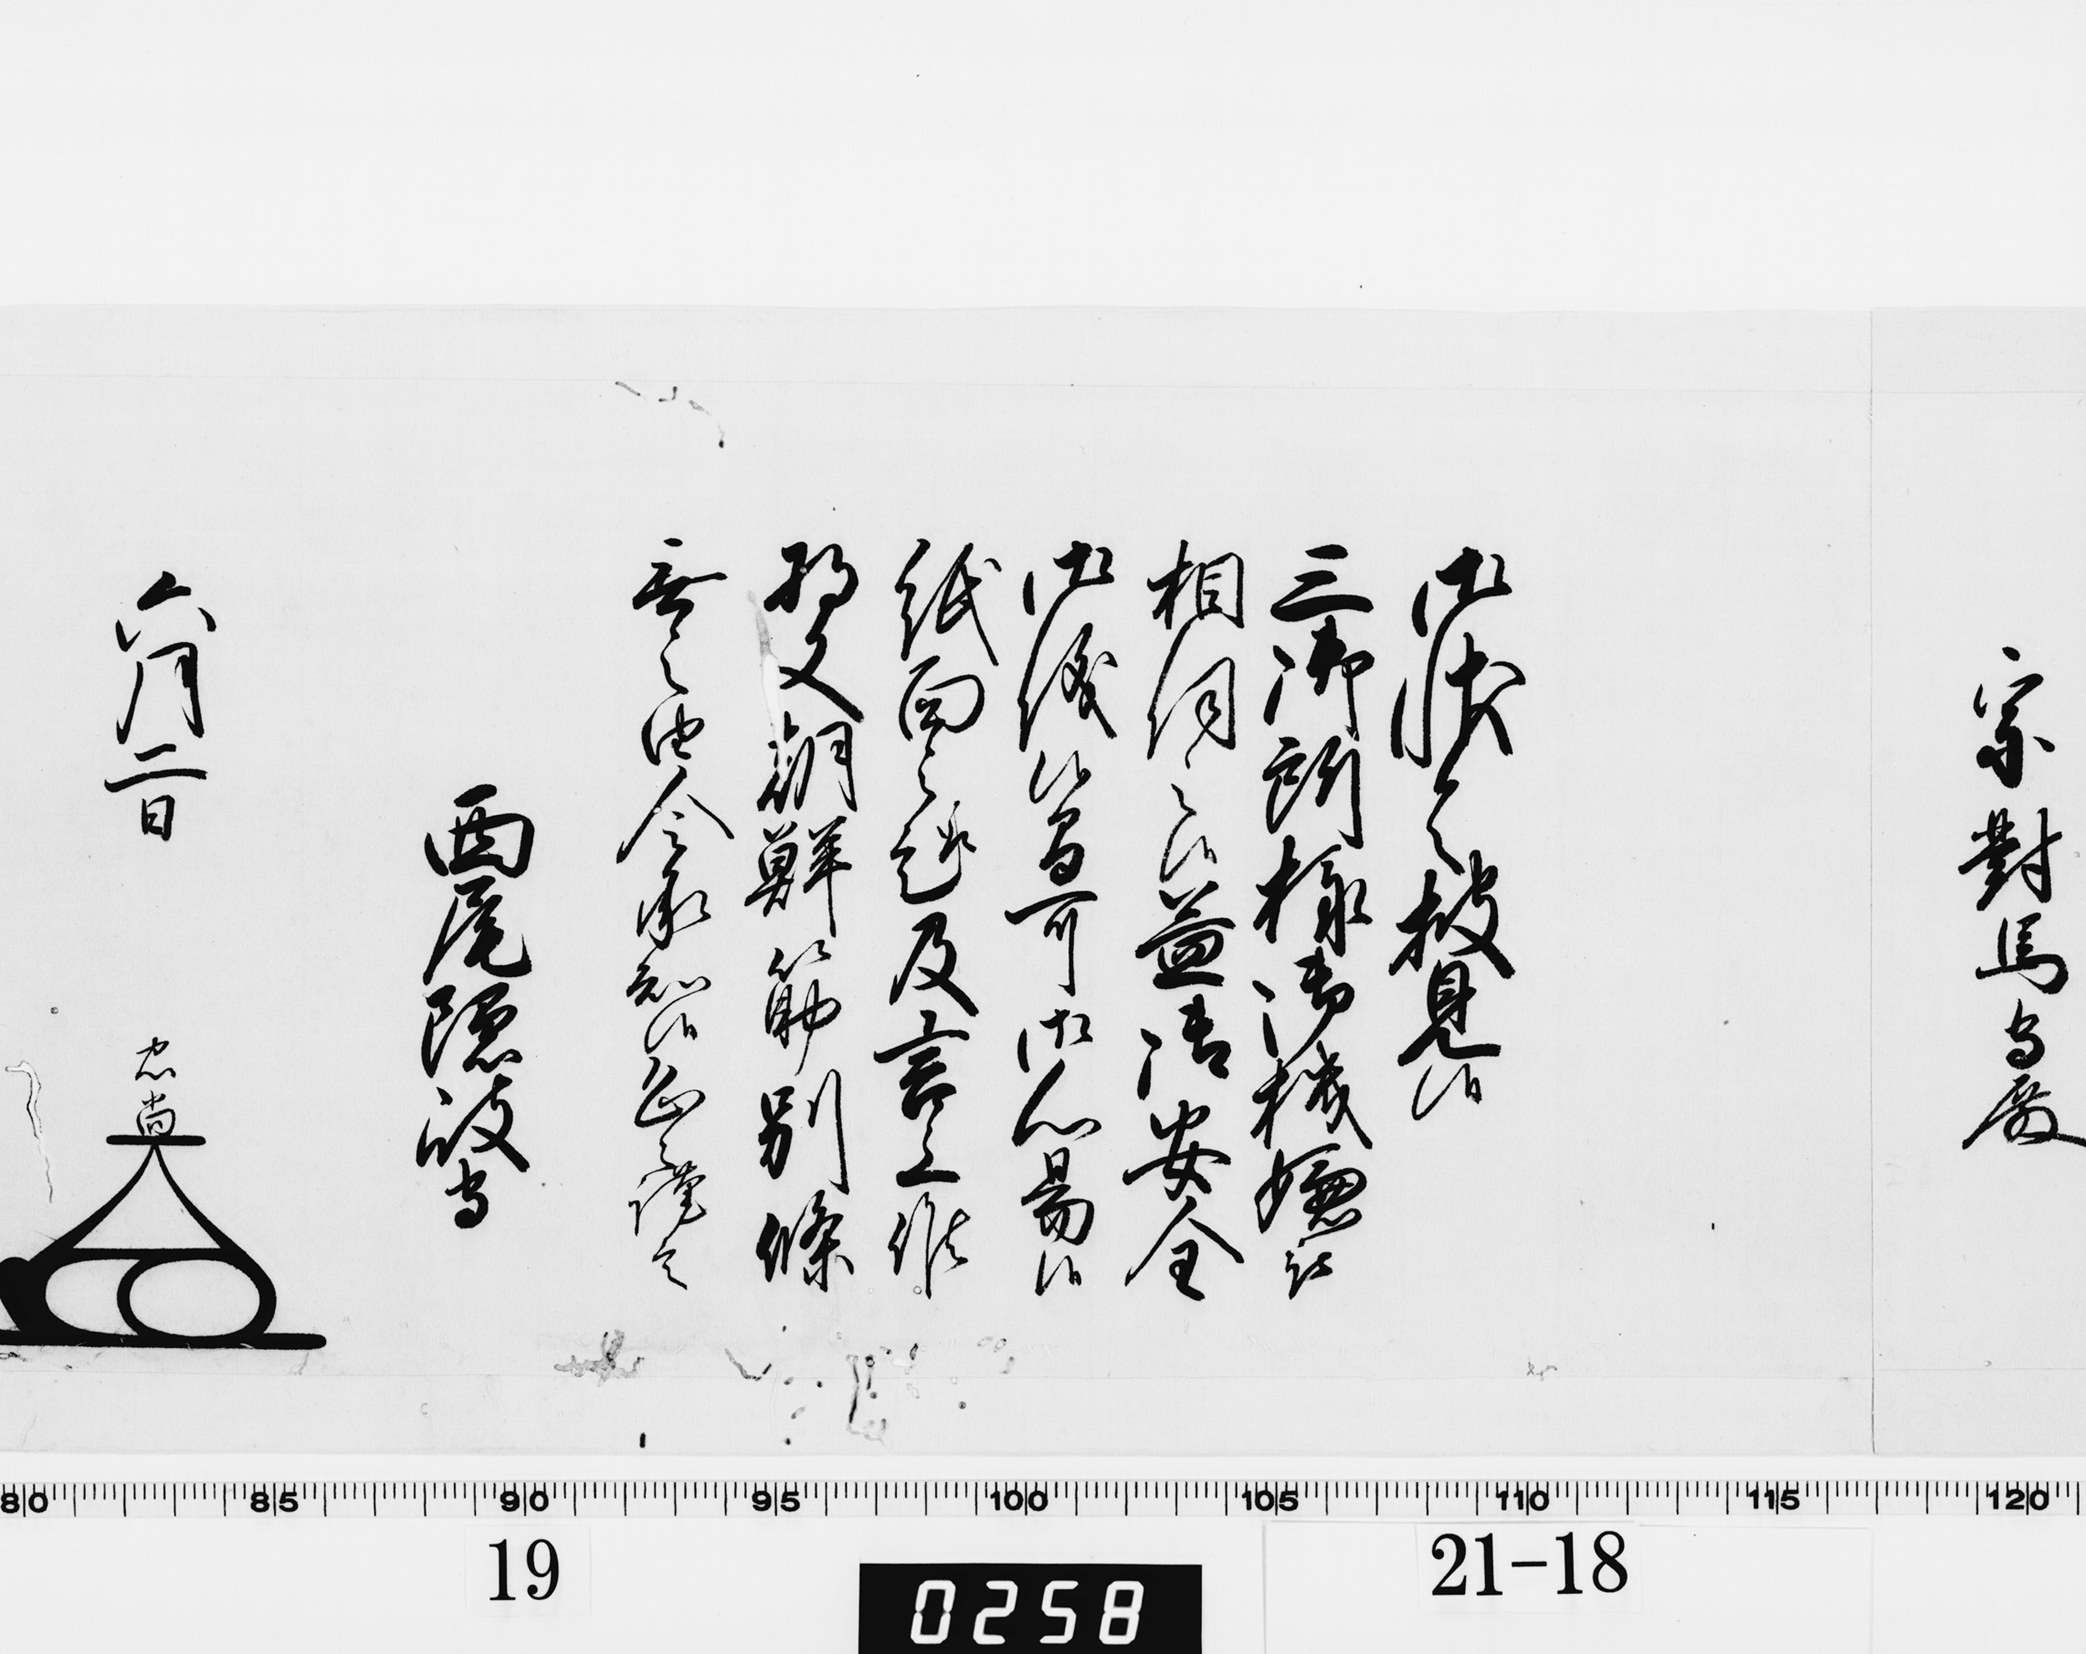 宗對馬守殿
御状令披見候
三御所様御機嫌被
相伺之候益御安全
御儀候間可御心易候
紙面之趣及言上候
将又朝鮮筋別條
無之由令承知候恐々謹言
西尾隠岐守
六月二日
忠尚
80 85 90 95 100 105 110 115 120
19
0258
21-18